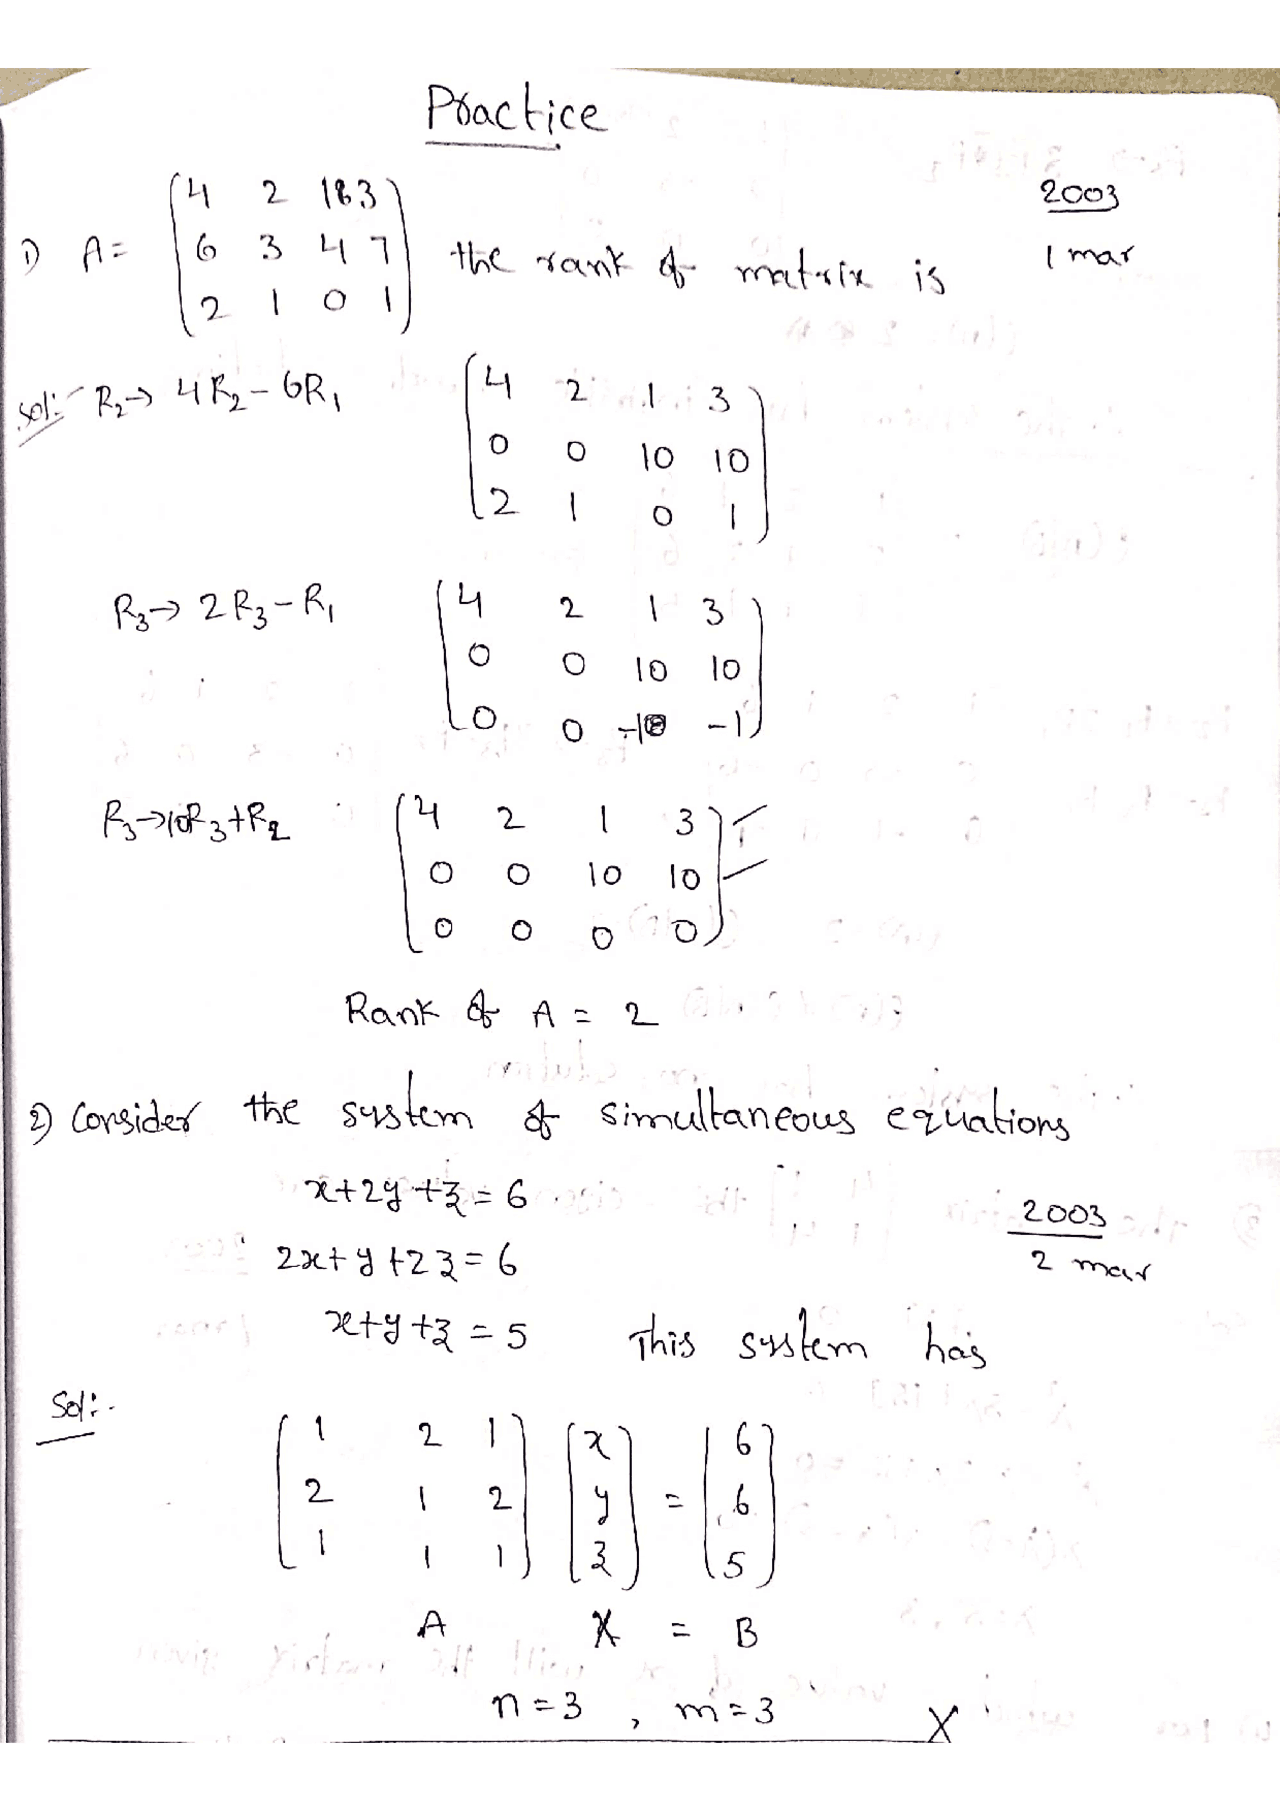 Practice
1) A = ( 4 2 1 3
6 3 4 7
2 1 0 1 ) the rank of matrix is
2003
1 mar
Sol:- R₂→ 4R₂ - 6R₁
( 4 2 1 3
0 0 10 10
2 1 0 1 )
R₃→ 2R₃ - R₁
( 4 2 1 3
0 0 10 10
0 0 -1 -1 )
R₃→10R₃+R₂
( 4 2 1 3
0 0 10 10
0 0 0 0 )
Rank of A = 2
2) Consider the system of simultaneous equations
x+2y+z = 6
2x+y+2z = 6
2003
2 mar
x+y+z = 5 This system has
Sol:-
( 1 2 1 ) ( x ) = ( 6 )
( 2 1 2 ) ( y ) ( 6 )
( 1 1 1 ) ( z ) ( 5 )
A X = B
n = 3 , m = 3 X